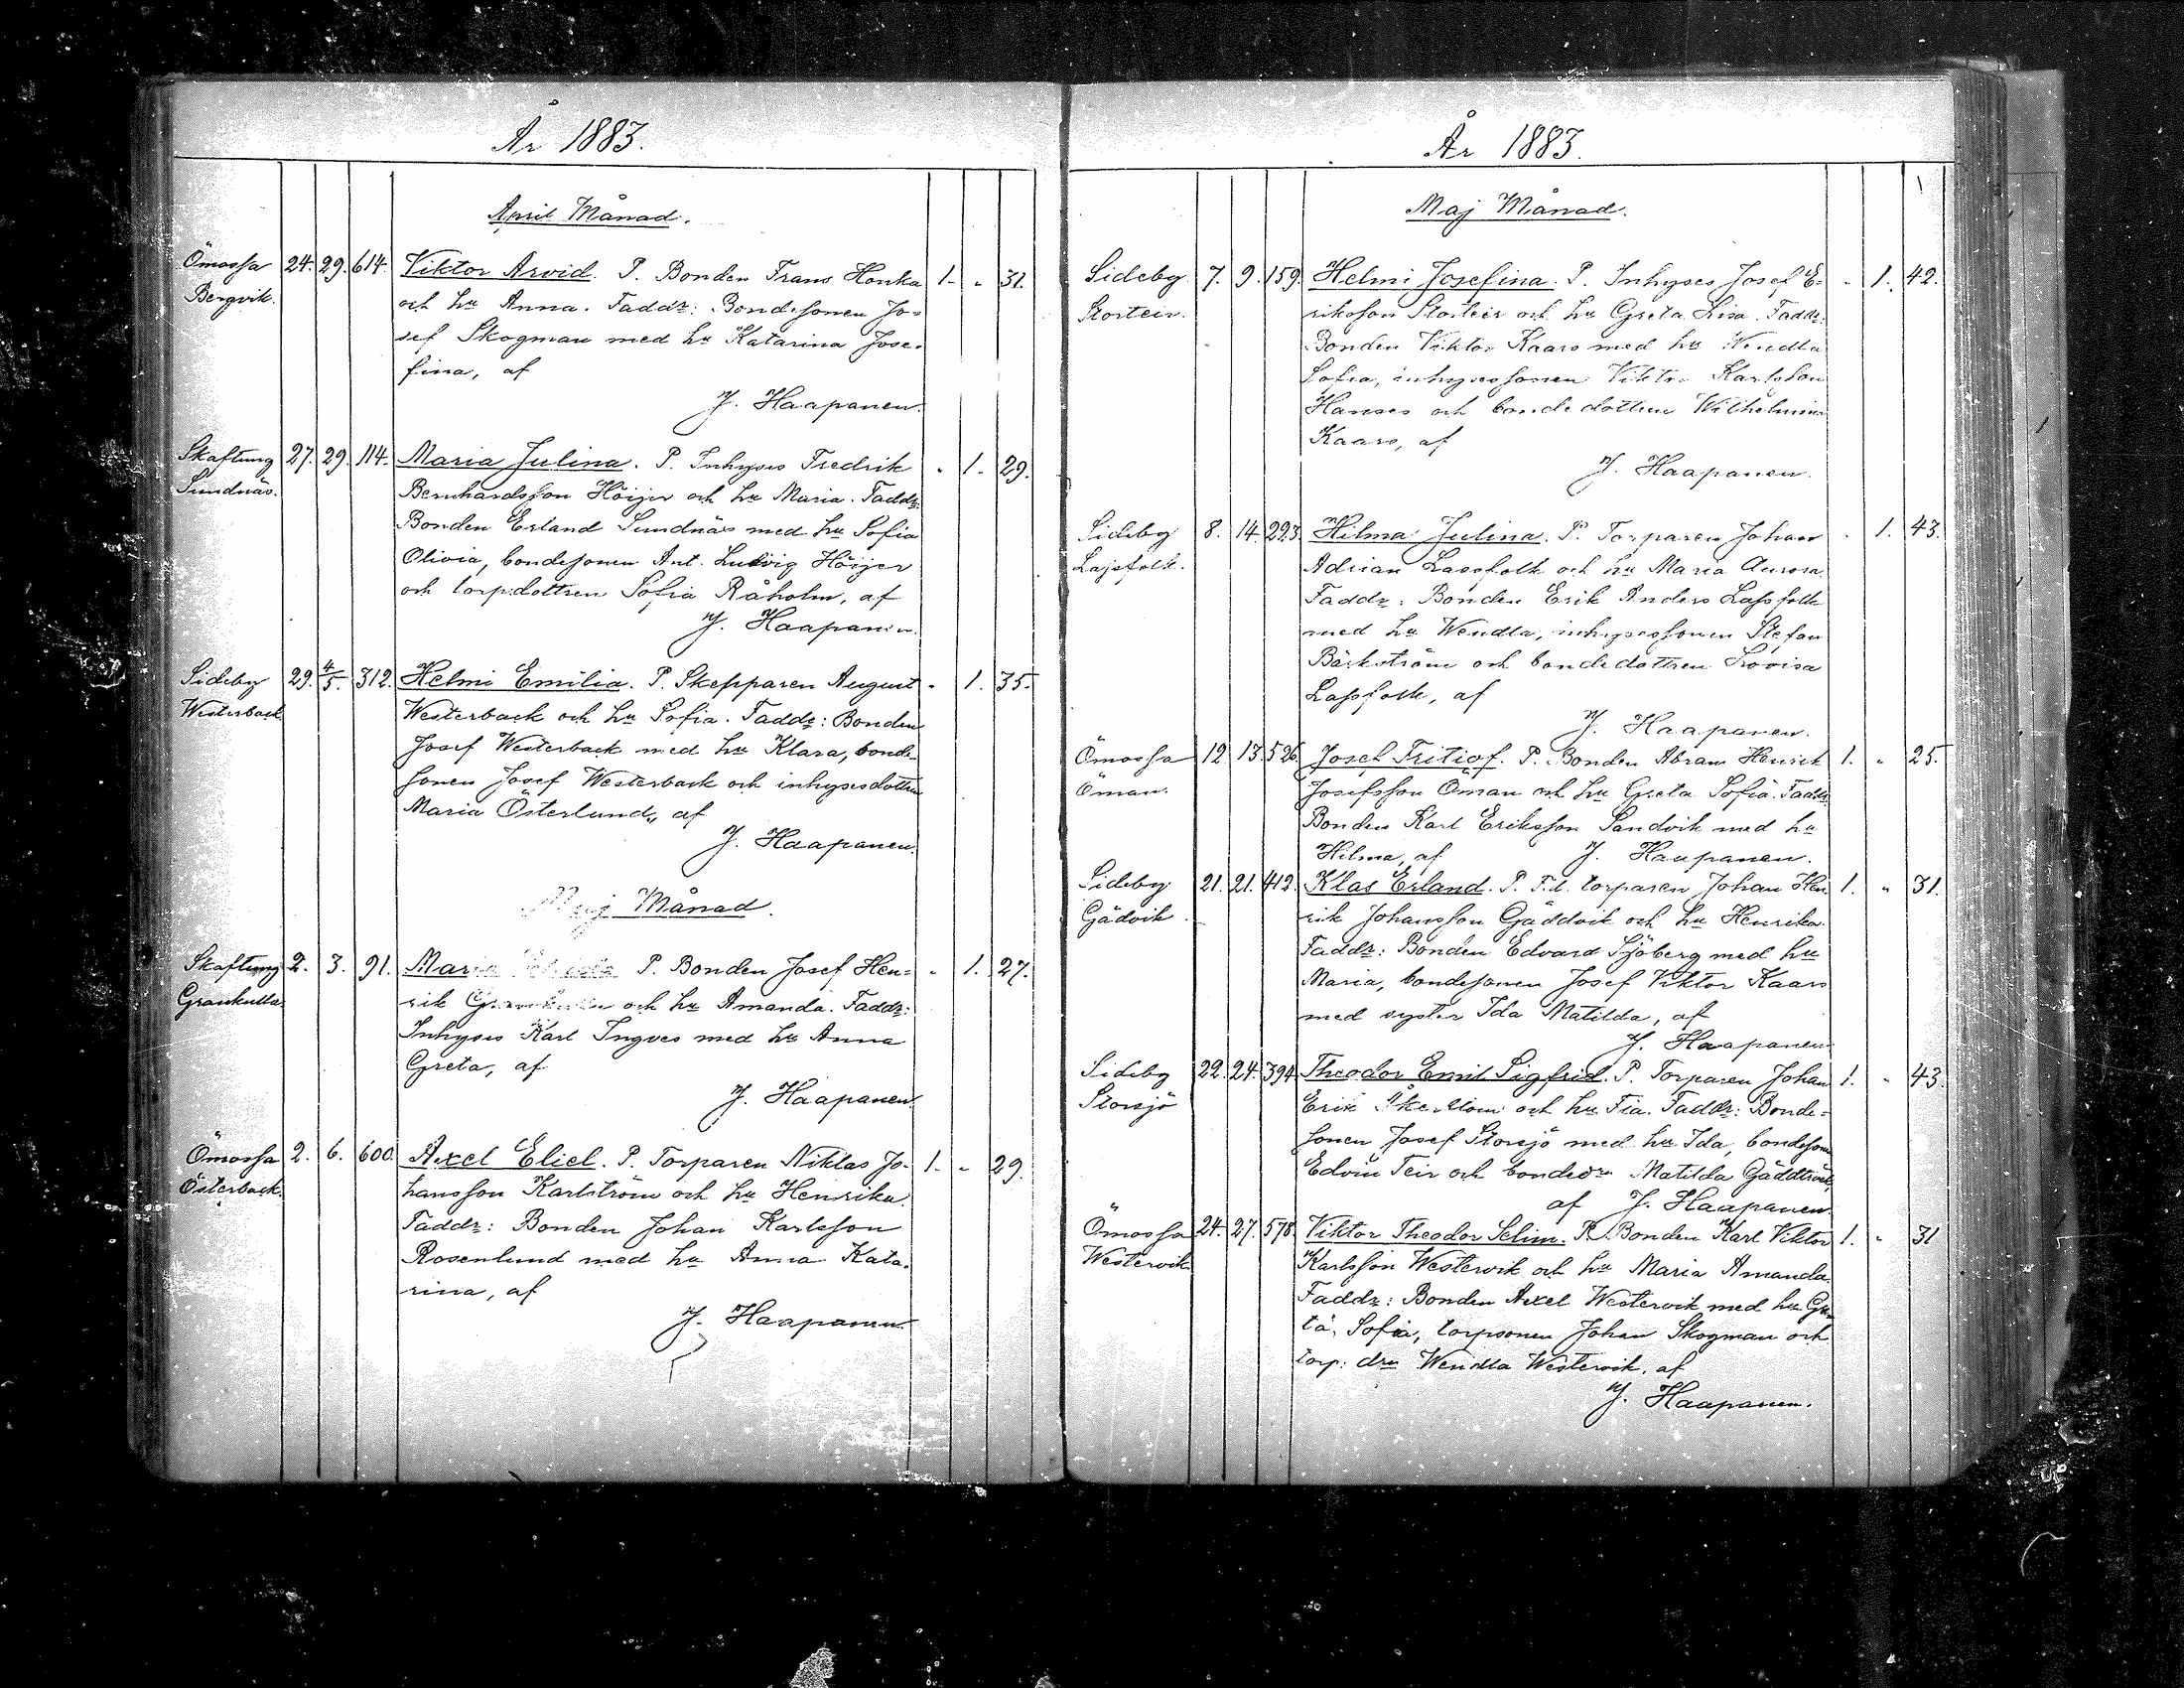 År 1883.
April Månad.
Ömossa 24. 29. 614. Viktor Arvid. P. Bonden Frans Honka 1. " 31.
Bergvik. och hu Anna. Faddr: Bondesonen Jo-
sef Skogman med hu Katarina Jose-
fina, af
J. Haapanen.
Skaftung 27. 29. 114. Maria Julina. P. Inhyses Fredrik " 1. 29.
Sundnäs. Bernhardsson Höijer och hu Maria. Faddr:
Bonden Erland Sundnäs med hu Sofia
Olivia, bondesonen Ant. Ludvig Höijer
och torp:dottren Sofia Råholm, af
J. Haapanen.
Sideby 29. 4/5. 312. Helmi Emilia. P. Skepparen August " 1. 35.
Westerback Westerback och hu Sofia. Faddr: Bonden
Josef Westerback med hu Klara, bonde-
sonen Josef Westerback och inhysesdottren
Maria Österlund, af
J. Haapanen.
Maj Månad.
Skaftung 2. 3. 91. Maria P. Bonden Josef Hen- " 1. 27.
Grankulla rik och hu Amanda. Faddr:
Inhyses Karl Ingves med hu Anna
Greta, af
J. Haapanen.
Ömossa 2. 6. 600. Axel Eliel. P. Torparen Niklas Jo- 1. " 29.
Österback. hansson Karlström och hu Henrika.
Faddr: Bonden Johan Karlsson
Rosenlund med hu Anna Kata-
rina, af
J. Haapanen.
År 1883.
Maj Månad.
Sideby 7. 9. 159. Helmi Josefina. P. Inhyses Josef E- " 1. 42.
Storteir. riksson Storteir och hu Greta Lisa. Faddr:
Bonden Viktor Kaars med hu Wendla
Sofia, inhysessonen Viktor Karlsson
Hanses och bondedottren Wilhelmina
Kaars, af
J. Haapanen.
Sideby 8. 14. 223. Hilma Julina. P. Torparen Johan " 1. 43.
Lassfolk. Adrian Lassfolk och hu Maria Aurora.
Faddr: Bonden Erik Anders Lassfolk
med hu Wendla, inhysessonen Stefan
Bäckström och bondedottren Lovisa
Lassfolk, af
J. Haapanen.
Ömossa 12. 13. 526. Josef Fritiof. P. Bonden Abram Henrik 1. " 25.
Öman. Josefsson Öman och hu Greta Sofia. Faddr:
Bonden Karl Eriksson Sandvik med hu
Hilma, af J. Haapanen.
Sideby 21. 21. 412. Klas Erland. P. F.d. torparen Johan Hen 1. " 31.
Gädvik. rik Johansson Gäddvik och hu Henrika.
Faddr: Bonden Edvard Sjöberg med hu
Maria, bondesonen Josef Viktor Kaars
med syster Ida Matilda, af
J. Haapanen
Sideby 22. 24. 394. Theodor Emil Sigfrid. P. Torparen Johan 1. " 43.
Storsjö Erik och hu Fia. Faddr: Bonde-
sonen Josef Storsjö med hu Ida, bondeson
Edvin Teir och bondedrn Matilda Gäddträsk,
af J. Haapanen
Ömossa 24. 27. 578. Viktor Theodor Selim. P. Bonden Karl Viktor 1. " 31
Westervik Karlsson Westervik och hu Maria Amanda.
Faddr: Bonden Axel Westervik med hu Gre-
ta Sofia, torpsonen Johan Skogman och
torp: drn Wendla Westervik, af
J. Haapanen.